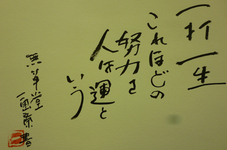 一打一生
これほどの
努力を
人は運と
いう
無茶堂
書